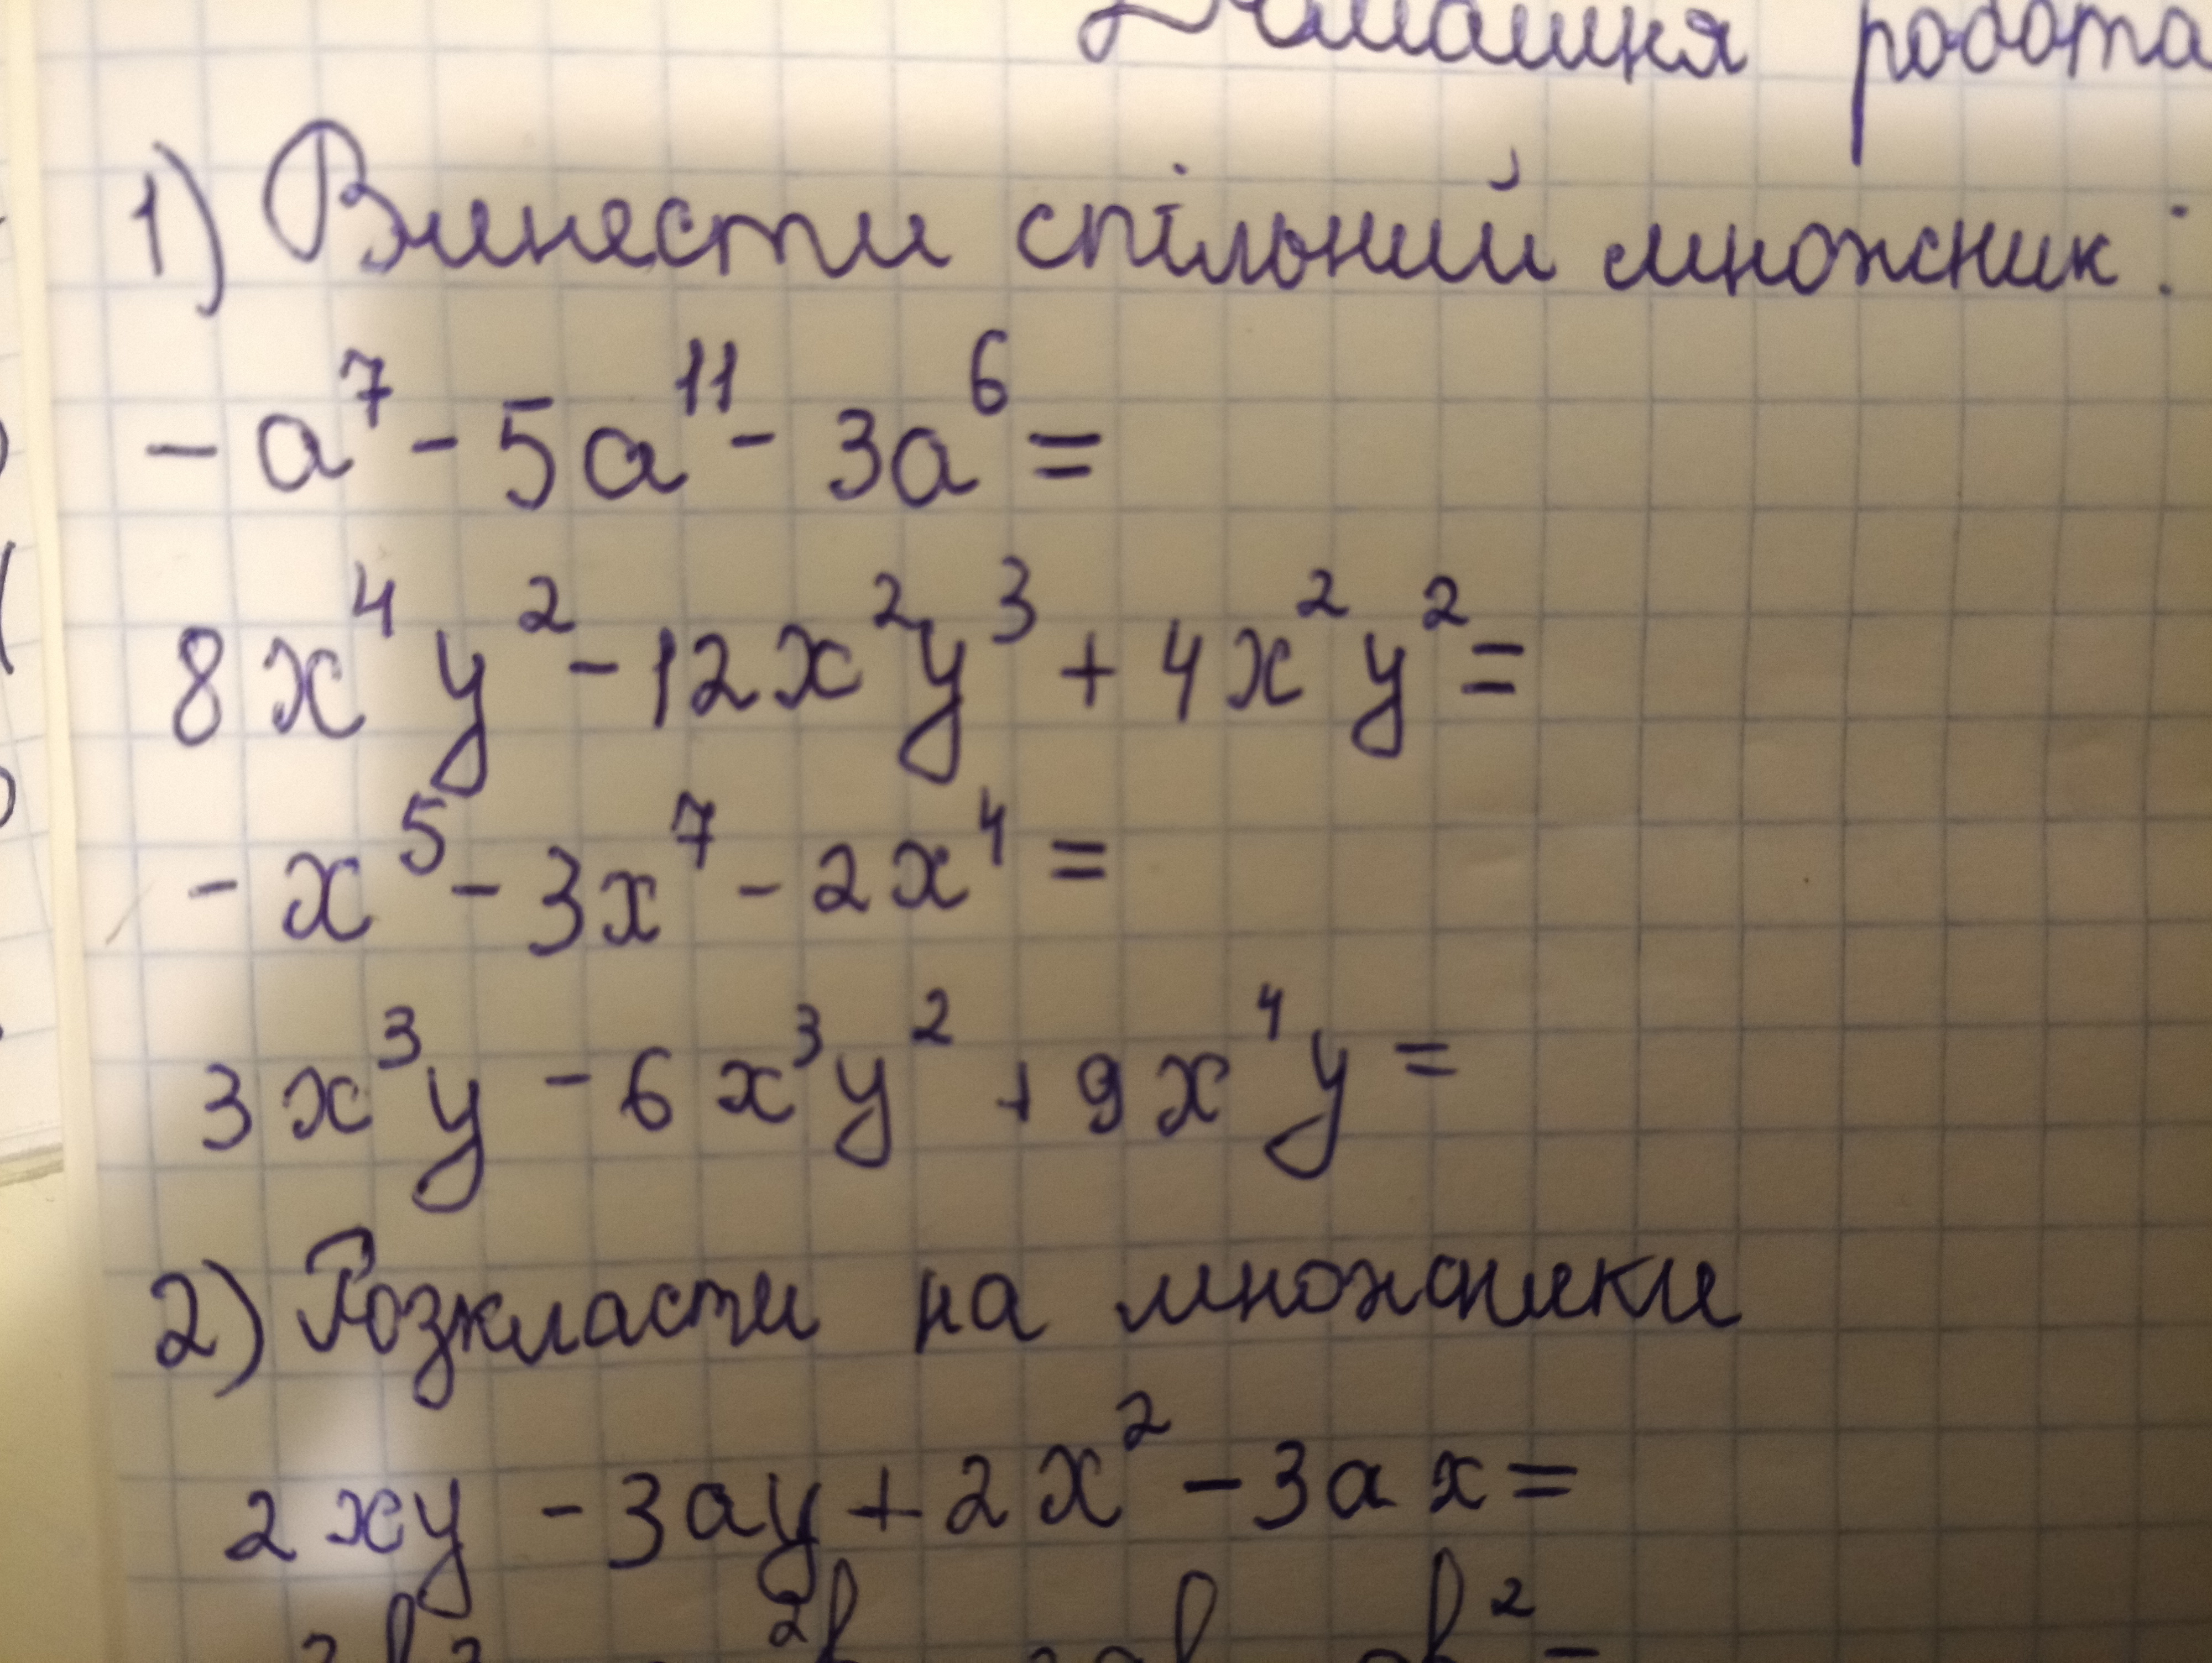 Домашня робота
1) Винести спільний множник:
-a⁷ - 5a¹¹ - 3a⁶ =
8x⁴y² - 12x²y³ + 4x²y² =
-x⁵ - 3x⁷ - 2x⁴ =
3x³y - 6x³y² + 9x⁴y =
2) Розкласти на множники
2xy - 3ay + 2x² - 3ax =